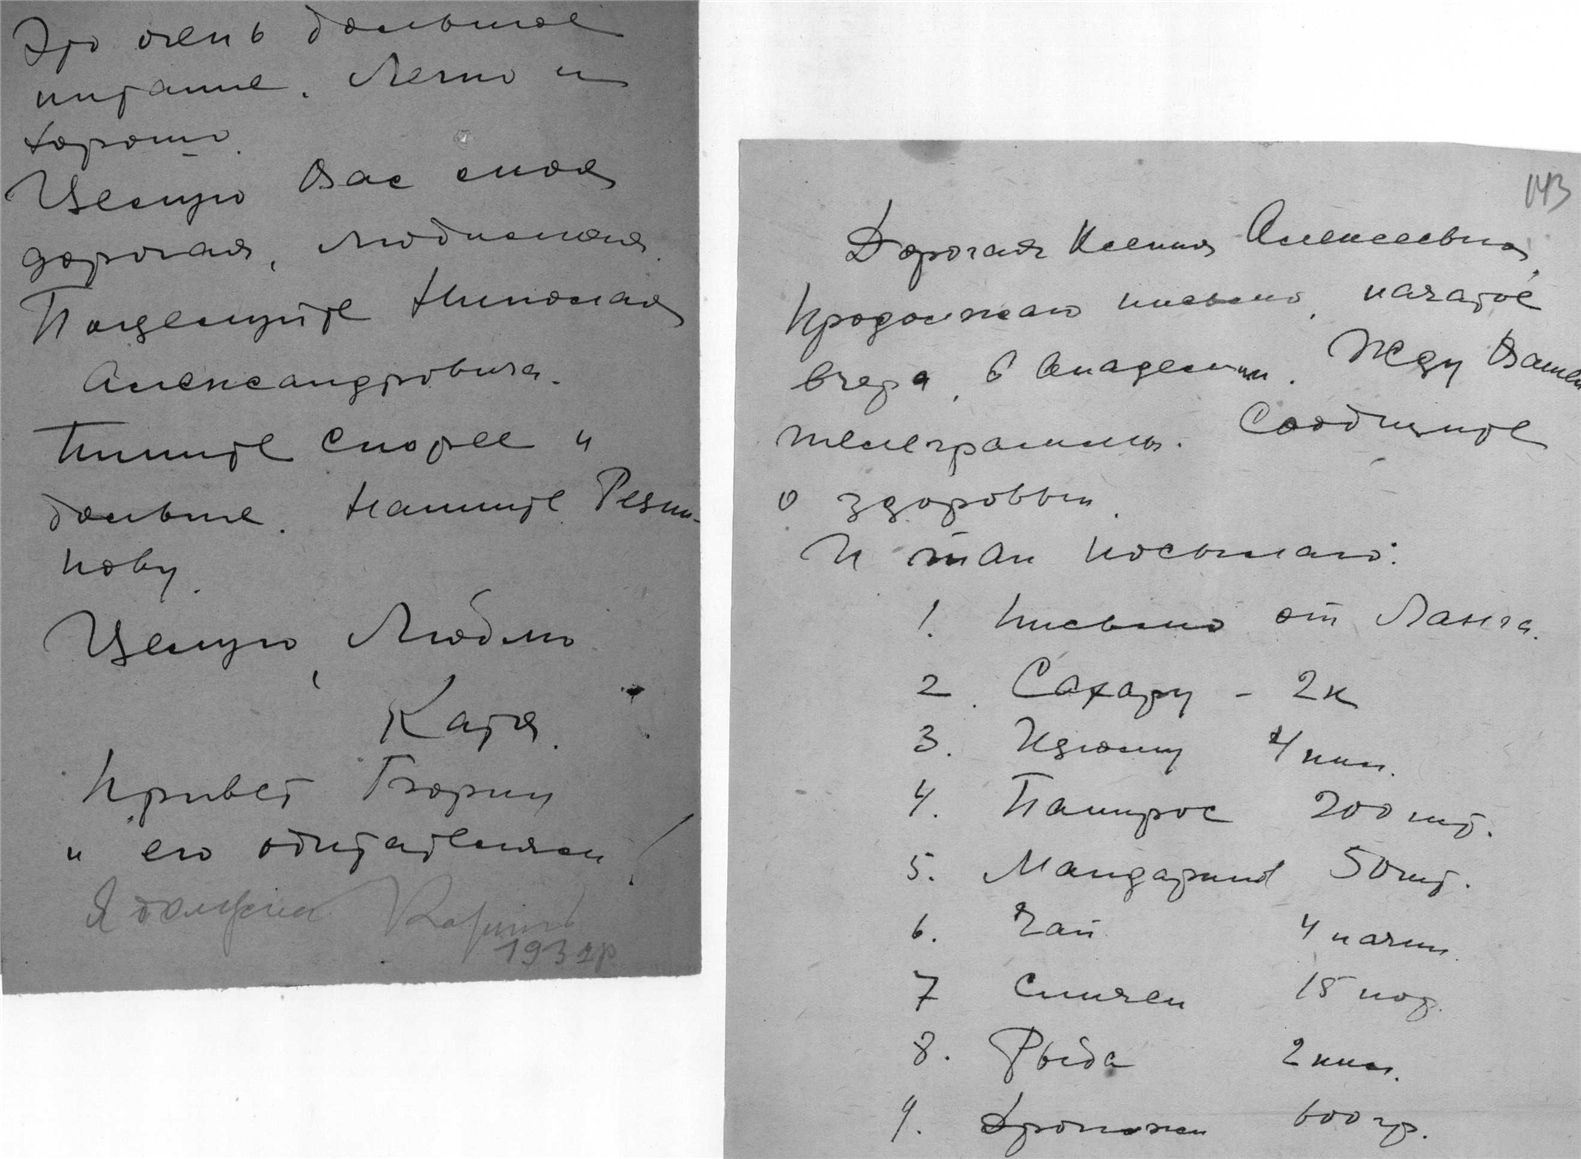 Это очень большое
питание. Легко и
хорошо.
Целую Вас моя
дорогая, любимая.
Поцелуйте Николая
Александровича.
Пишите скорее и
больше. Напишите Резни-
кову.
Целую, Люблю
Катя.
Привет Борису
и его обитателям!
Я должна
193 г
143
Дорогая Ксения Алексеевна,
Продолжаю письмо, начатое
вчера, в Академии. Жду Вашей
телеграммы. Сообщите
о здоровьи.
И так посылаю:
1. Письмо от Ланга.
2. Сахару - 2к
3. Изюму 4 кил.
4. Папирос 200 шт.
5. Мандаринов 50 шт.
6. Чай 4 пачки.
7 Спички 15 кор.
8. Рыба 2 кил.
9. Дрожжи 600 гр.